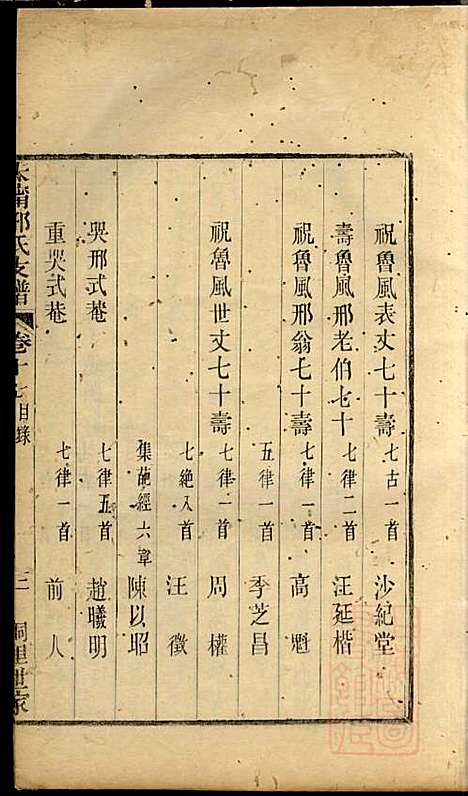 祝魯風表丈七十壽 七古一首 沙紀堂
壽魯風邢老伯七十 七律二首 汪延楷
祝魯風邢翁七十壽 七律一首 高魁
五律一首 季芝昌
祝魯風世丈七十壽 七律一首 周權
七絶八首 汪徵
集葩經六章 陳以昭
哭邢式菴 七律五首 趙曦明
重哭式菴 七律一首 前人
邢氏支譜 卷十七目錄 三 世家